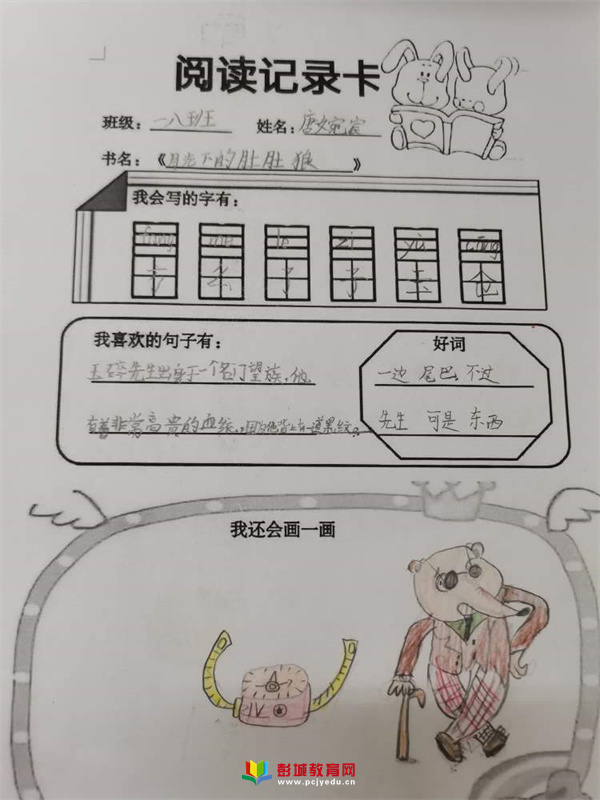 阅读记录卡
班级：一八班 姓名：唐
书名：《月光下的肚肚狼》
我会写的字有：
fāng mǐ le zi yù cāng
方 米 了 子 玉 仓
我喜欢的句子有： 好词
先生出身于一个名门望族，他
有着非常高贵的血统，因为他背上有一道黑纹。
一边 尾巴 不过
先生 可是 东西
我还会画一画
彭城教育网
www.pcjyedu.cn